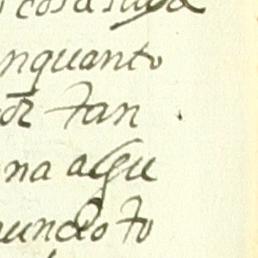 cosa suya
nquanto
or tan
na algu
undo to